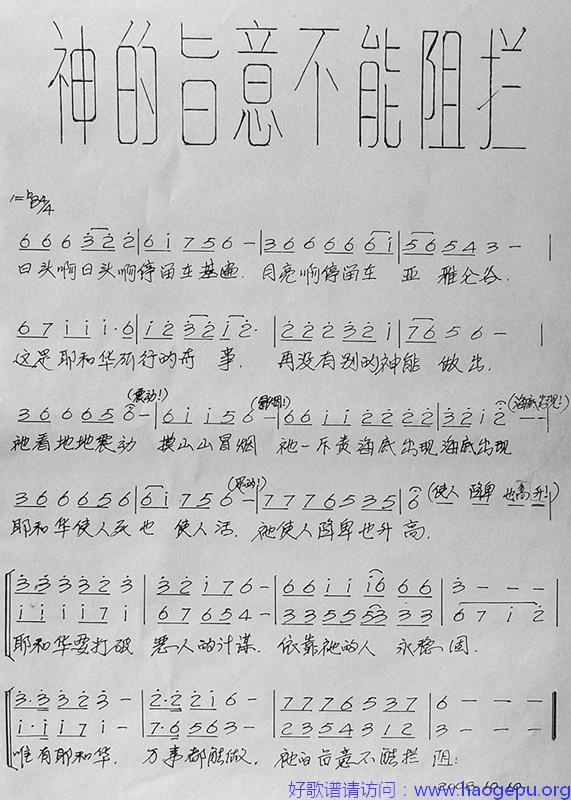 神的旨意不能阻拦
1=♭B 4/4
6 6 6 3̇ 2̇ 2̇ | 6 i 7 5 6 - | 3 6 6 6 6 6 i | 5 6 5 4 3 - |
日头啊日头啊停留在基遍. 月亮啊停留在 亚 雅仑谷.
6 7 i i i·6 | i 2̇ 3̇ 2̇ i 2̇· | 2̇ 2̇ 2̇ 3̇ 2̇ i | 7 6 5 6 - |
这是耶和华所行的奇 事. 再没有别的神能 做出.
(震动!) (冒烟!) (海底出现!)
3 6 6 6 6 5 6 - | 6 i i 5 6 - | 6 6 i i 2̇ 2̇ 2̇ 2̇ | 3̇ 2̇ i 2̇ - - |
祂看地地震动 摸山山冒烟 祂一斥责海底出现海底出现
(使人 降卑 也高升!)
3 6 6 6 6 5 6 | 6 i i 7 5 6 - | 7 7 7 7 6 5 3 5 | 6 - - - |
耶和华使人死也 使人活. 祂使人降卑也升 高.
3̇ 3̇ 3̇ 3̇ 2̇ 3̇ | 3̇ 2̇ i 7 6 - | 6 6 i i i 6 6 6 | 3̇ - - - |
i i i i 7 i | 6 7 6 5 4 - | 3 3 5 5 5 3 3 3 | 6 7 i 2̇ |
耶和华要打破 恶人的计谋. 依靠祂的人 永稳固.
3̇·3̇ 3̇ 2̇ 3̇ - | 2̇·2̇ 2̇ i 6 - | 7 7 7 6 5 3 7 | 6 - - - |
i·i i 7 i - | 7·6 5 6 3 - | 2 3 5 4 3 1 2 | 3 - - - |
唯有耶和华. 万事都能做. 祂的旨意不能拦 阻.
好歌谱请访问：www.haogepu.org